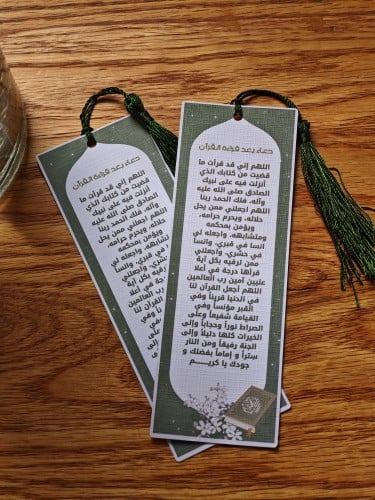 دعاء بعد قراءة القرآن
اللهم إني قد قرأت ما
قضيت من كتابك الذي
أنزلت فيه على نبيك
الصادق صلى الله عليه
وآله، فلك الحمد ربنا
اللهم اجعلني ممن يحل
حلاله، ويحرم حرامه،
ويؤمن بمحكمه
ومتشابهه، واجعله لي
انسا في قبري، وانسا
في حشري، واجعلني
ممن ترقيه بكل آية
قرأها درجة في أعلا
عليين آمين رب العالمين
اللهم أجعل القرآن لنا
في الدنيا قريناً وفي
القبر مؤنساً وفي
القيامة شفيعاً وعلى
الصراط نوراً وحجاباً وإلى
الخيرات كلها دليلاً وإلى
الجنة رفيقاً ومن النار
ستراً و إماماً بفضلك و
جودك يا كريم
دعاء بعد قراءة القرآن
اللهم إني قد قرأت ما
قضيت من كتابك الذي
أنزلت فيه على نبيك
الصادق صلى الله عليه
وآله، فلك الحمد ربنا
اللهم اجعلني ممن
حلاله، ويحرم